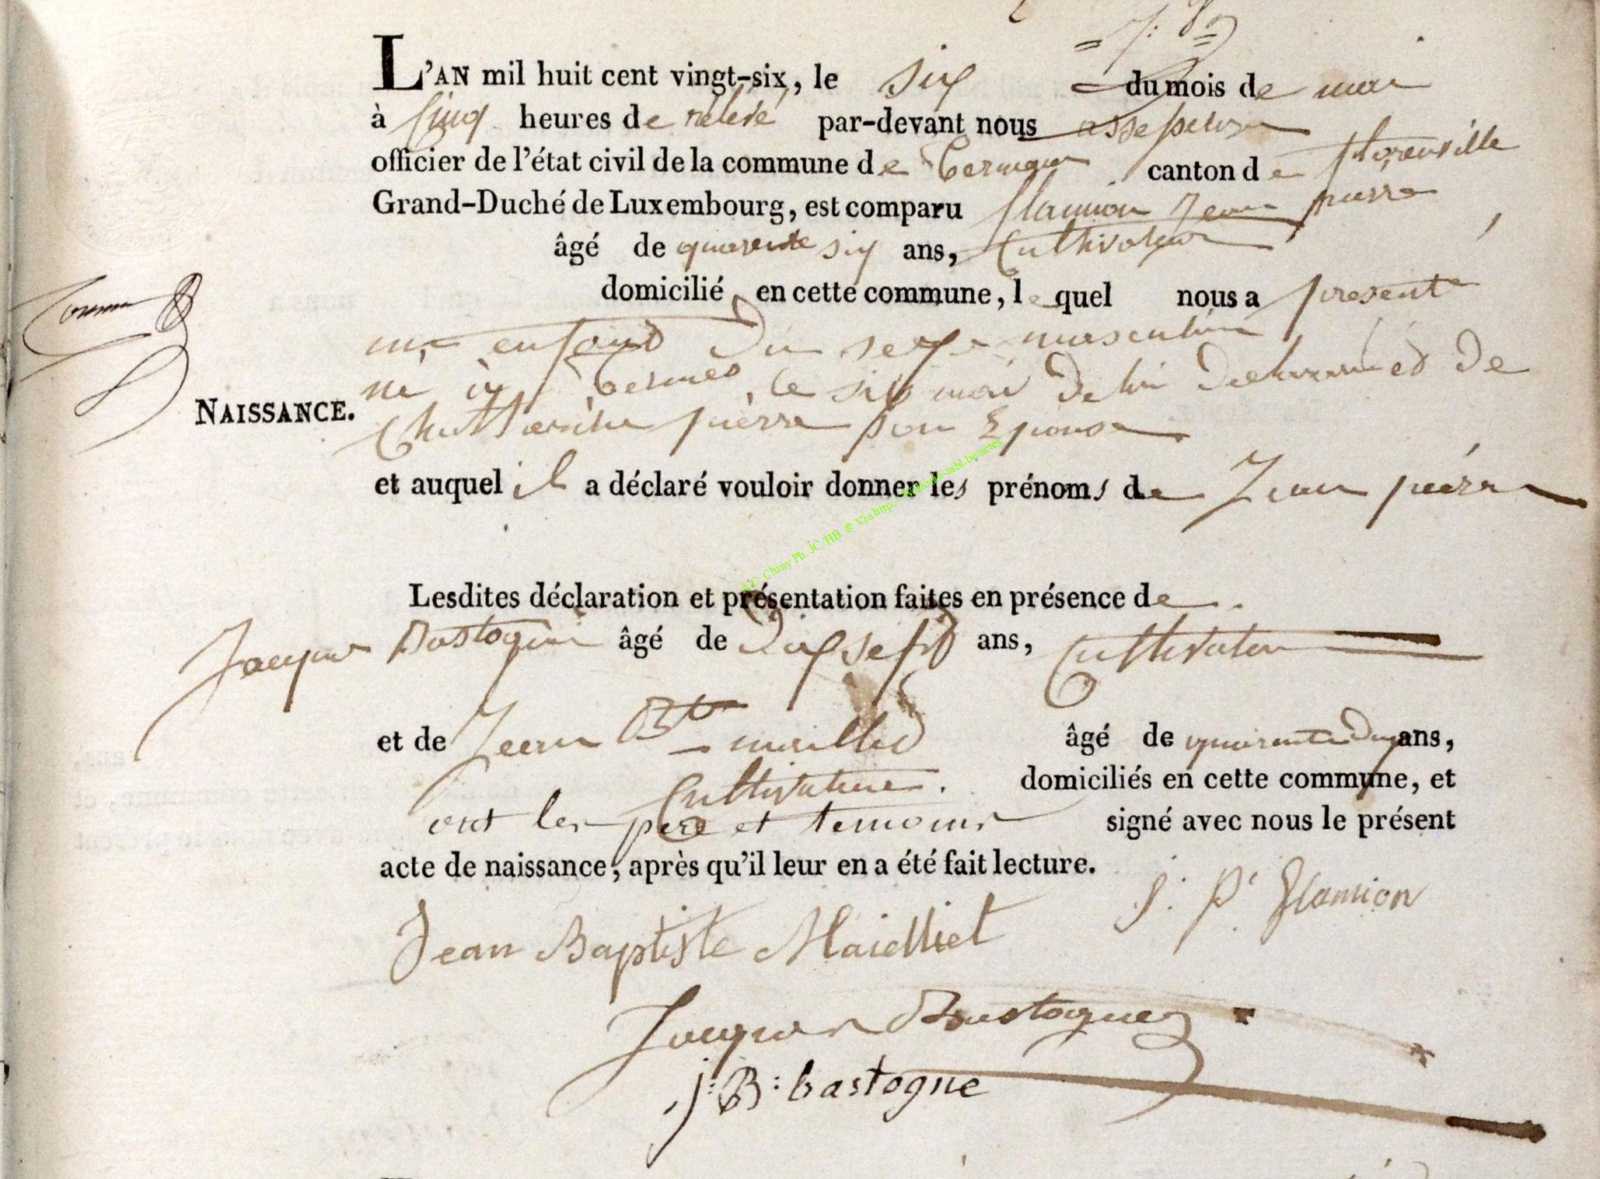 L'AN mil huit cent vingt-six, le six du mois de mai
à Cinq heures de relevé par-devant nous assesseur
officier de l'état civil de la commune de termes canton de florenville
Grand-Duché de Luxembourg, est comparu flamion Jean pierre
âgé de quarente six ans, Cultivateur
domicilié, en cette commune, lequel nous a présenté
un enfant du sexe masculin
né à termes, le six mai de lui déclarant et de
pierre son Epouse
NAISSANCE.
et auquel il a déclaré vouloir donner les prénoms de Jean pierre
Lesdites déclaration et présentation faites en présence de
Jacques Bastogne âgé de dix sept ans, Cultivateur
et de Jean Bte maillet âgé de quarante deux ans,
Cultivateur. domiciliés en cette commune, et
ont les père et temoins signé avec nous le présent
acte de naissance, après qu'il leur en a été fait lecture.
J: P: Flamion
Jean Baptiste Maielliet
Jacques Bastogne
J: B: bastogne